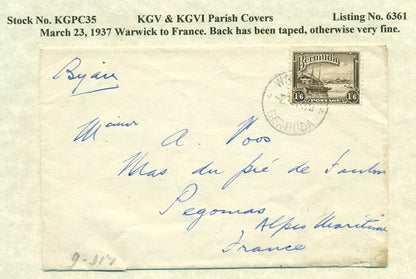 Stock No. KGPC35 KGV & KGVI Parish Covers Listing No. 6361
March 23, 1937 Warwick to France. Back has been taped, otherwise very fine.
By air
Bermuda
1/6 POSTAGE 1/6
BERMUDA
A. Voos
Mas du pié de
Pegomas
Alpes Maritime
France